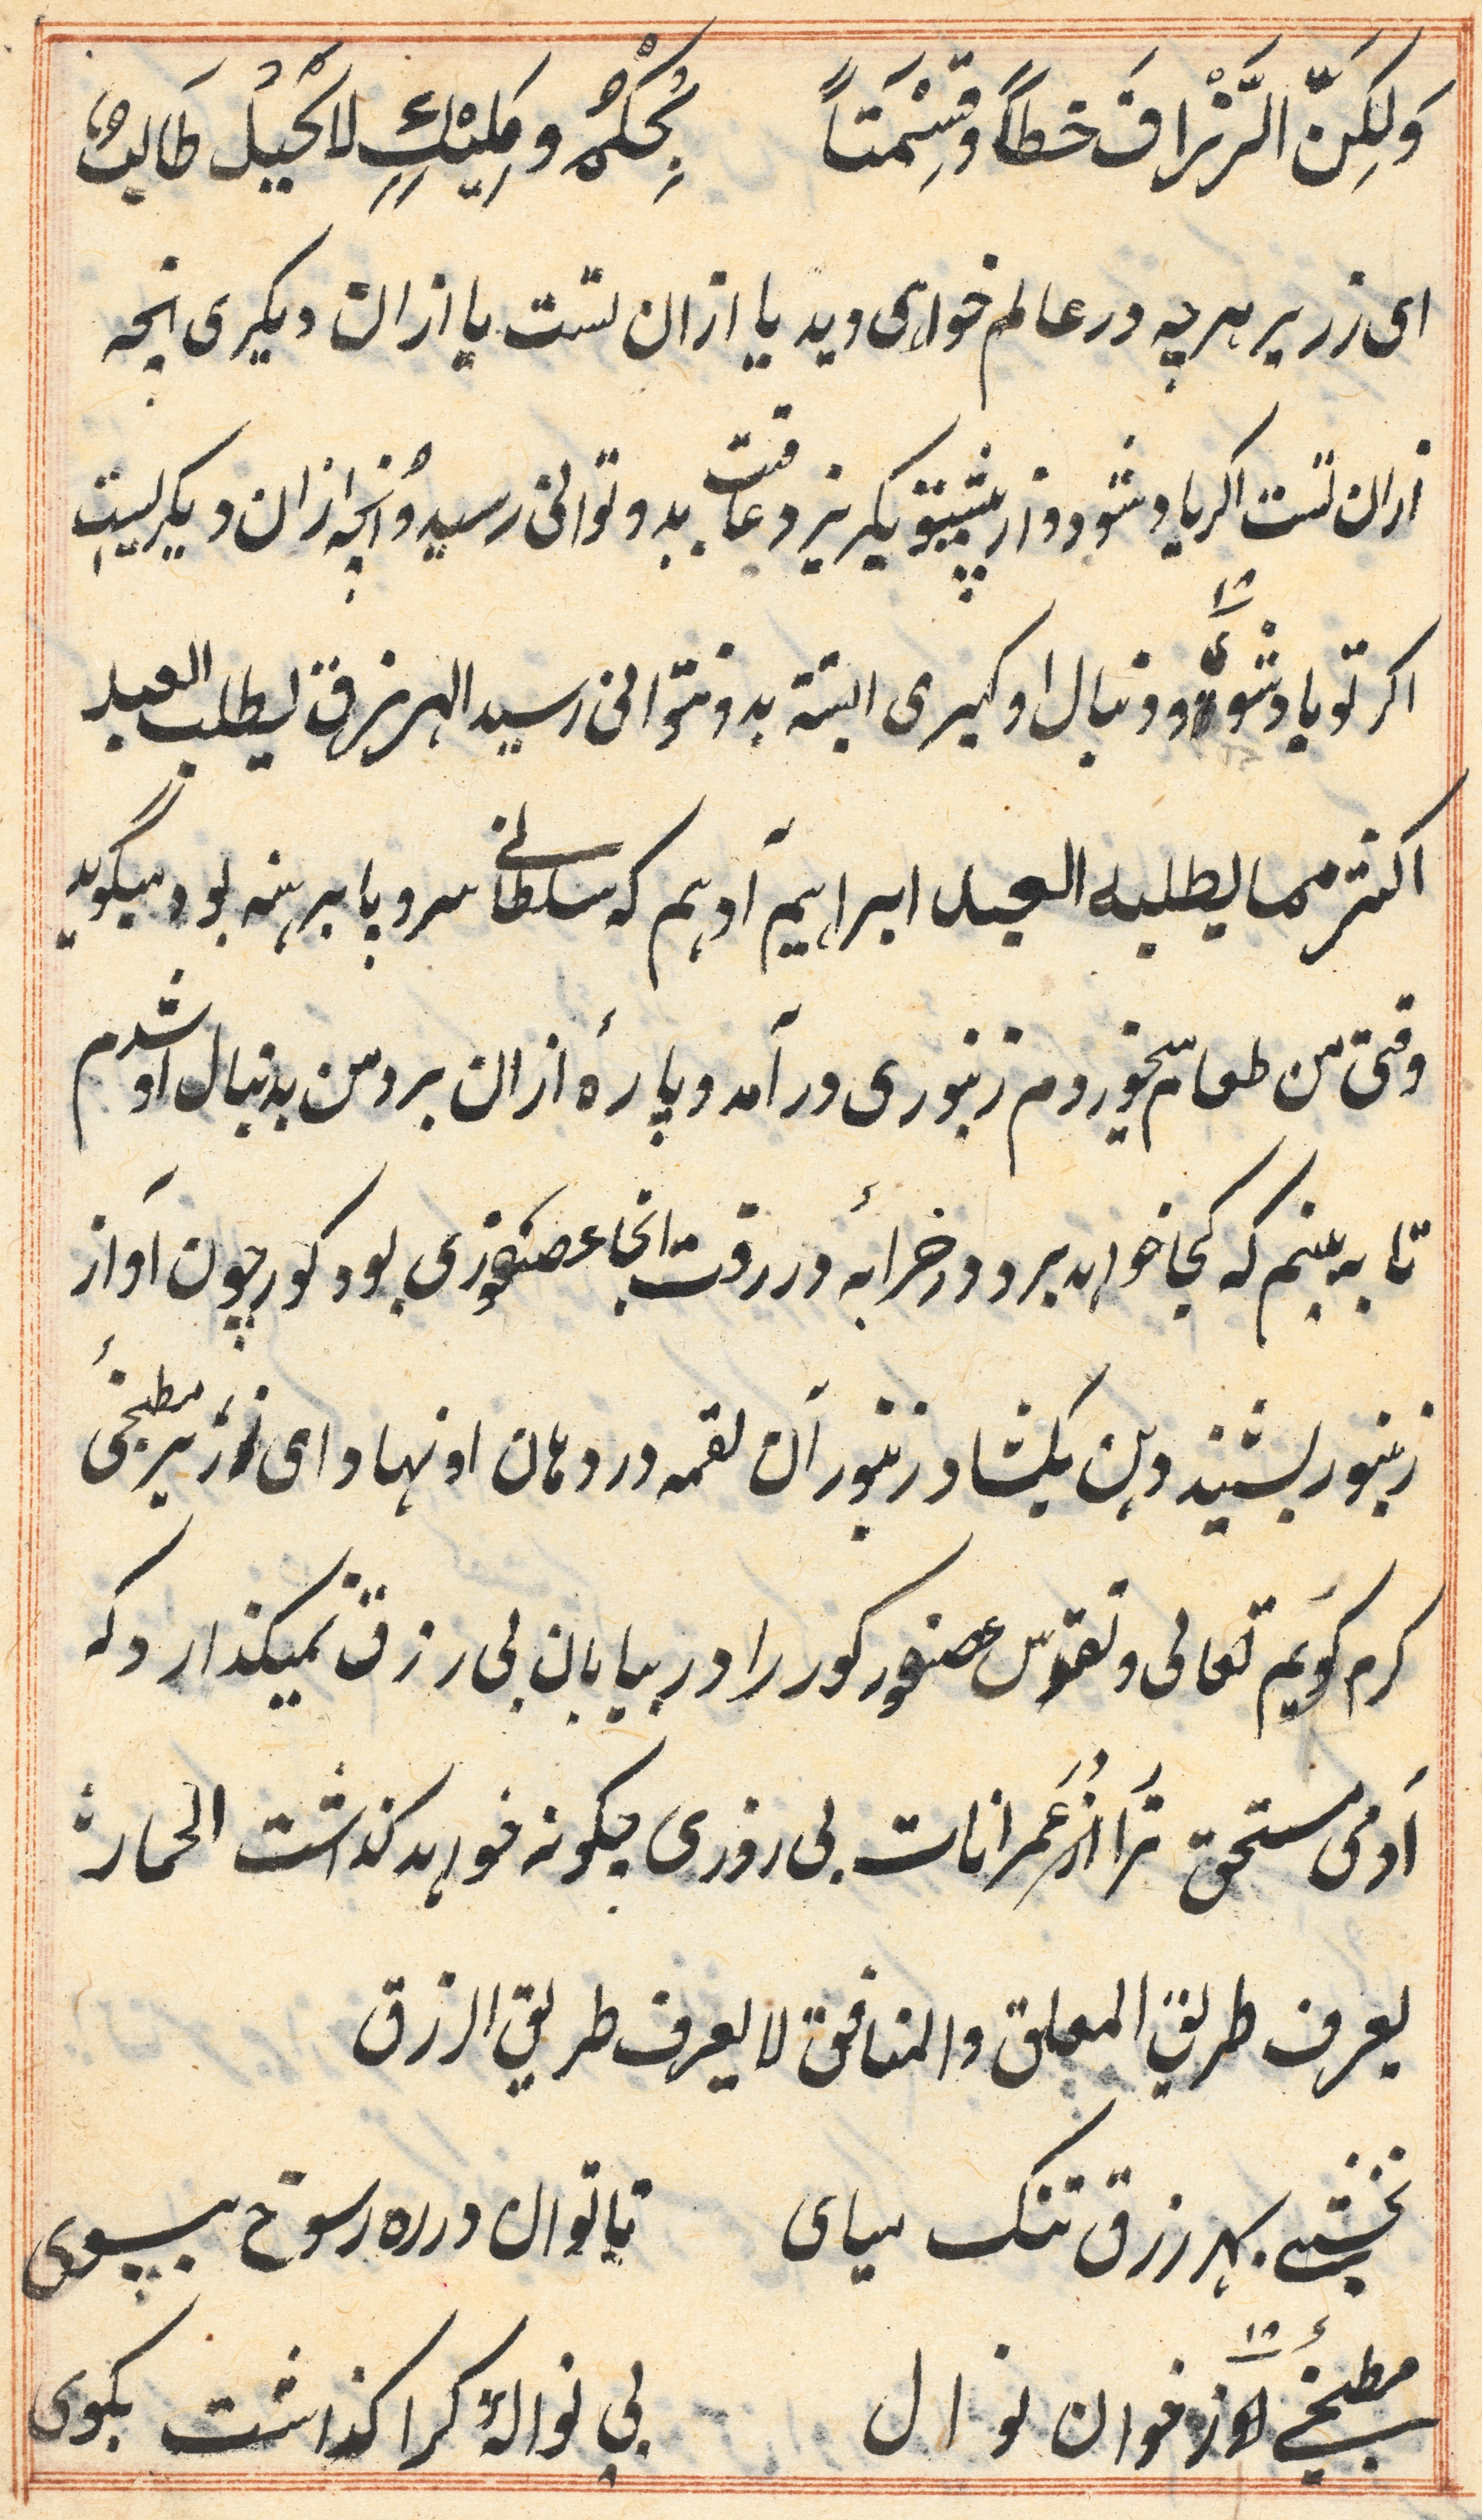 وَلٰكِنَّ الَّرْزَاقَ خطاً وقِسْمَتاً بِحُكْمِ ومَلِيْكٍ لاَ تحِيْلْ طَالِبُهٗ
ای زریر هرچه در عالم خواهی دید یا ازان تست یا ازان دیکری انچه
ازان تست اکر باد شود و از پیشتو بکریزد عاقبت بدو توانی رسید وُانچه ازان دیکریست
اکر تو باد شوی و دنبال او کیری البتة بدو نتوانی رسید الرزق یطلب العبد
اکثر مما یطلبه العبد ابراهیم آدهم که سلطانی سروپا برهنه بود میکوید
وقتی من طعام میخوردم زنبوری در آمد و پارهٔ ازان برد من بدنبال او شدم
تا به بینم که کجا خواهد برد در خرابهٔ در رفت انجا عصفوری بود کور چون آواز
زنبور بشنید دهن بکشاد زنبور آن لقمه در دهان او نهاد ای زریر مطبخیٔ
کرم کویم تعالی و تقدس عصفور کور را در بیابان بی رزق نمیکذارد که
آدمی مستحق ترا در عَمرانات بی روزی چکونه خواهد کذاشت الحمار
یعرف طریق المعلق والمنافق لا یعرف طریق الرزق
نخشبی بهر رزق تنک میای تا توان در ره رسوخ بپوی
مطبخیٔ او ز خوان نوال بی نوالهٔ کرا کذاشت بکوی